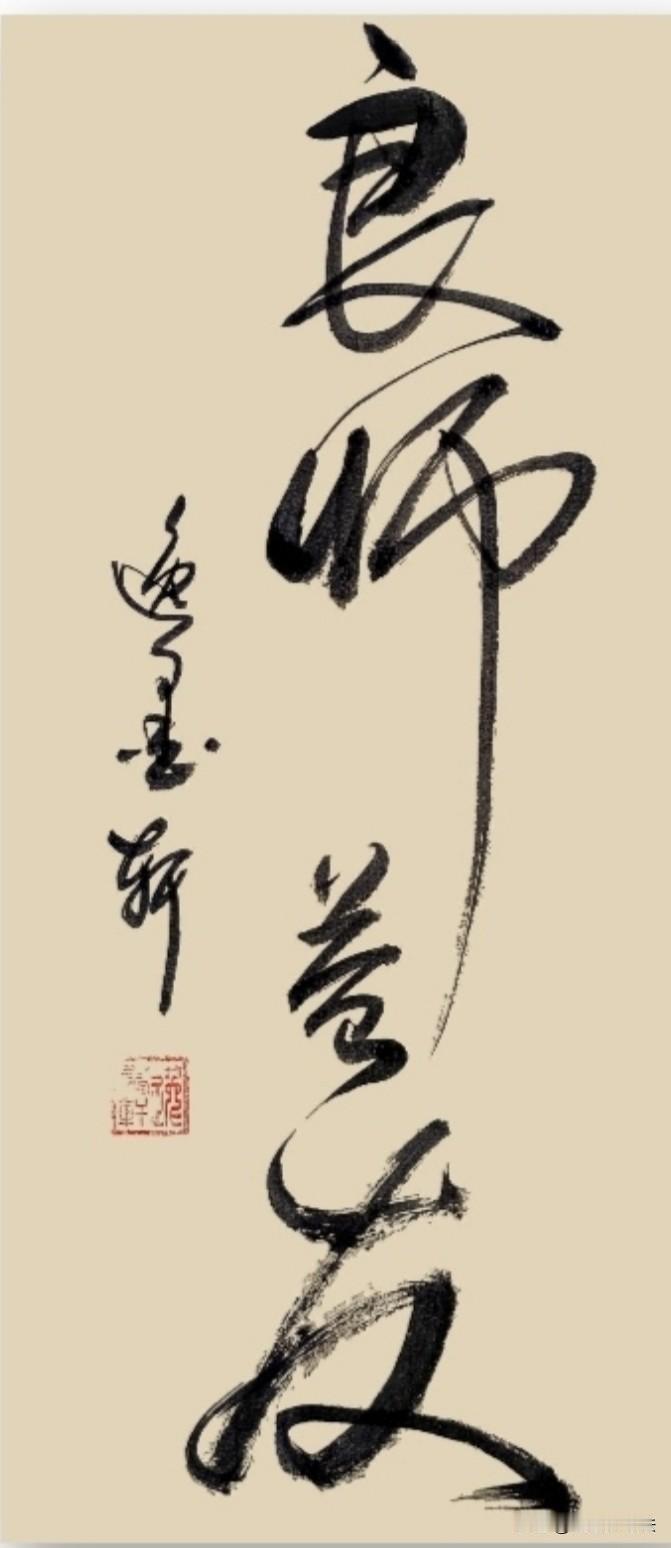 良师益友
逸墨轩